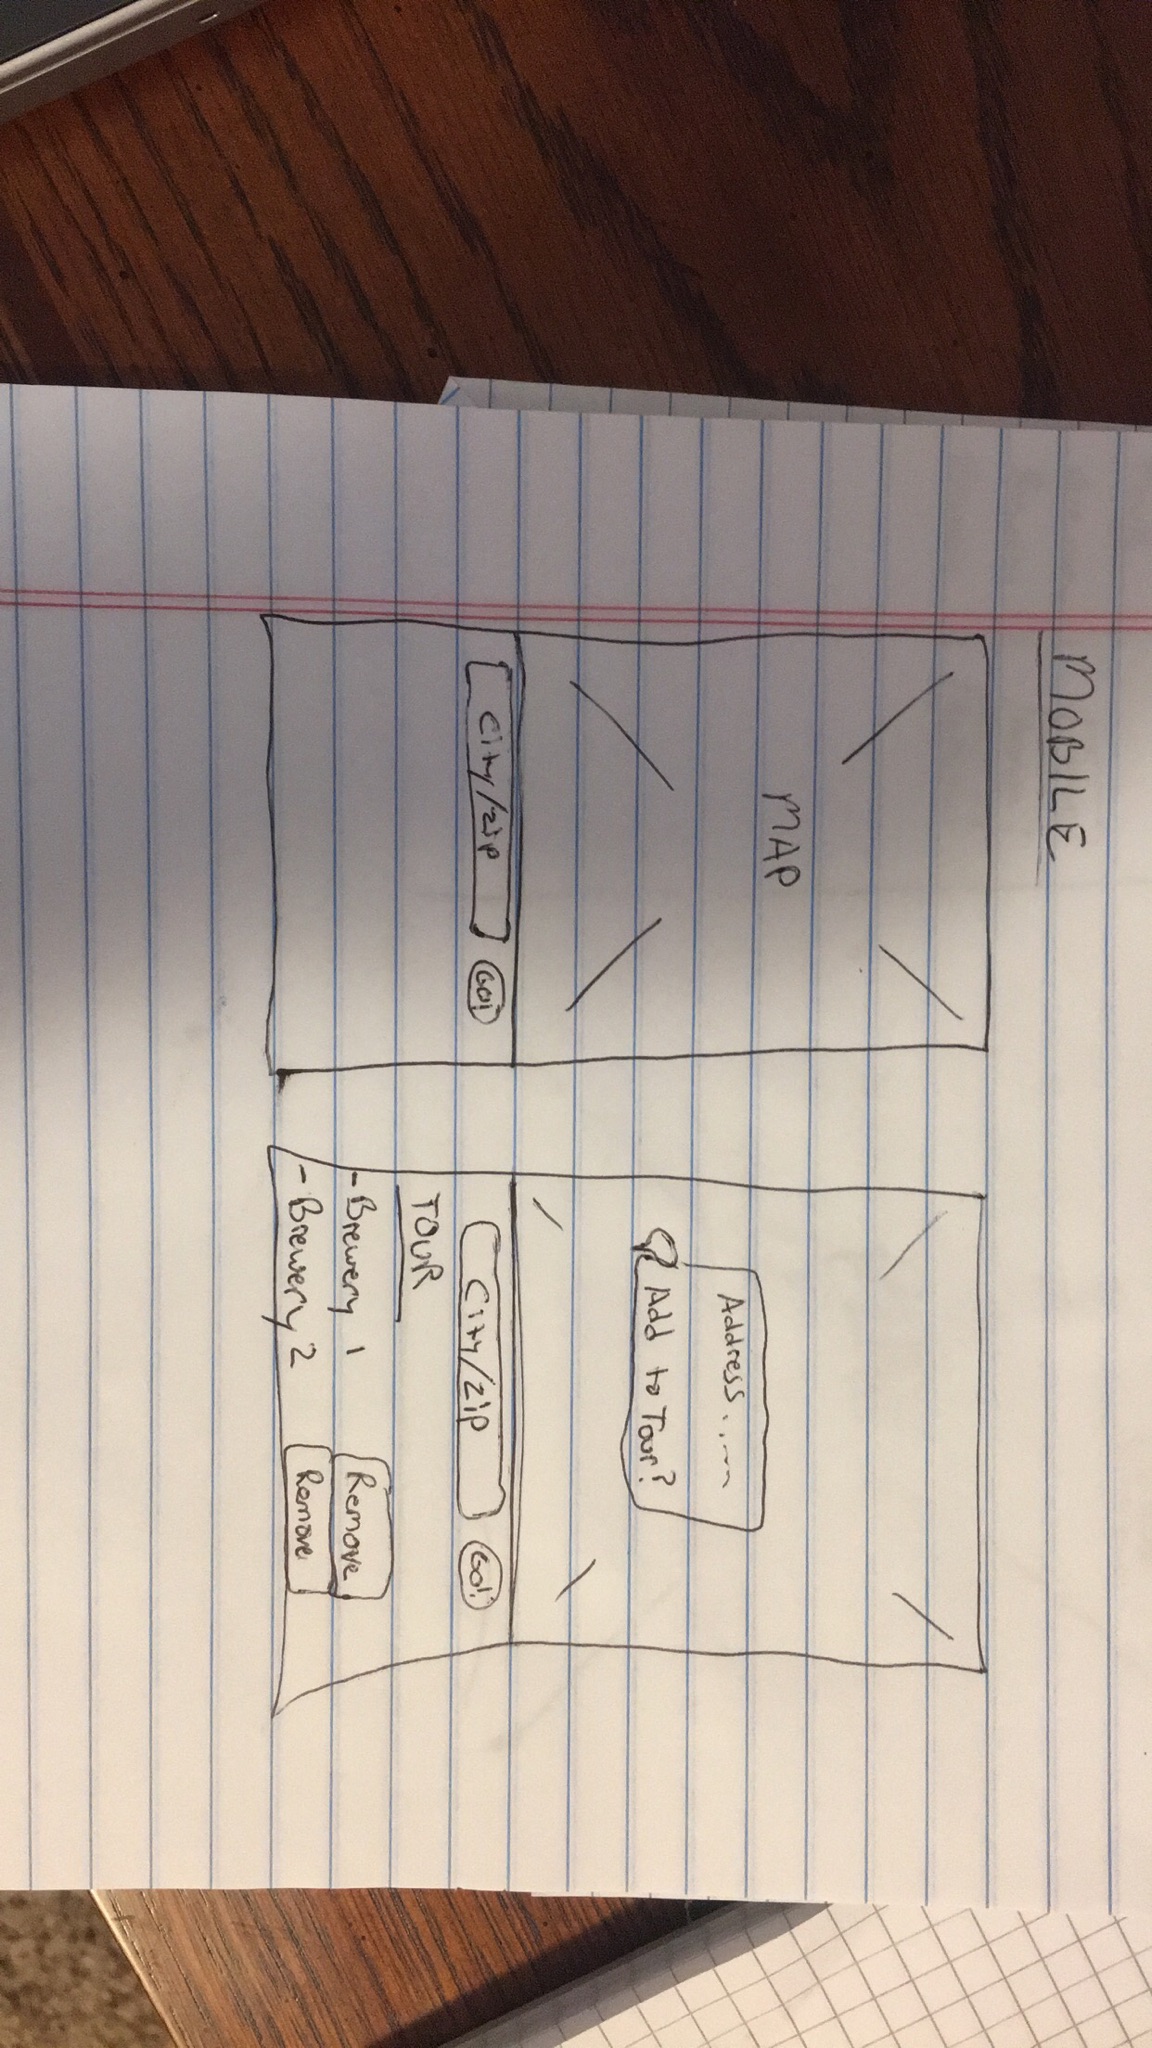 MOBILE
MAP
City/zip
GO!
Address......
Add to Tour?
City/zip
GO!
TOUR
- Brewery 1
Remove
- Brewery 2
Remove